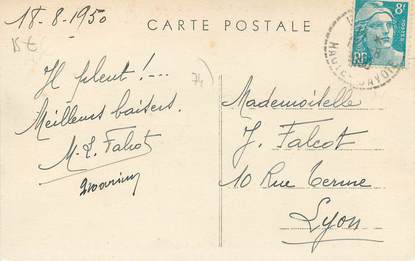 18-8-1950
CARTE POSTALE
15 €
8F
POSTES
RF
HAUTE-SAVOIE
74
Il pleut !...
Meilleurs baisers.
M. T. Falcot
Mademoiselle
J. Falcot
10 Rue Terme
Lyon